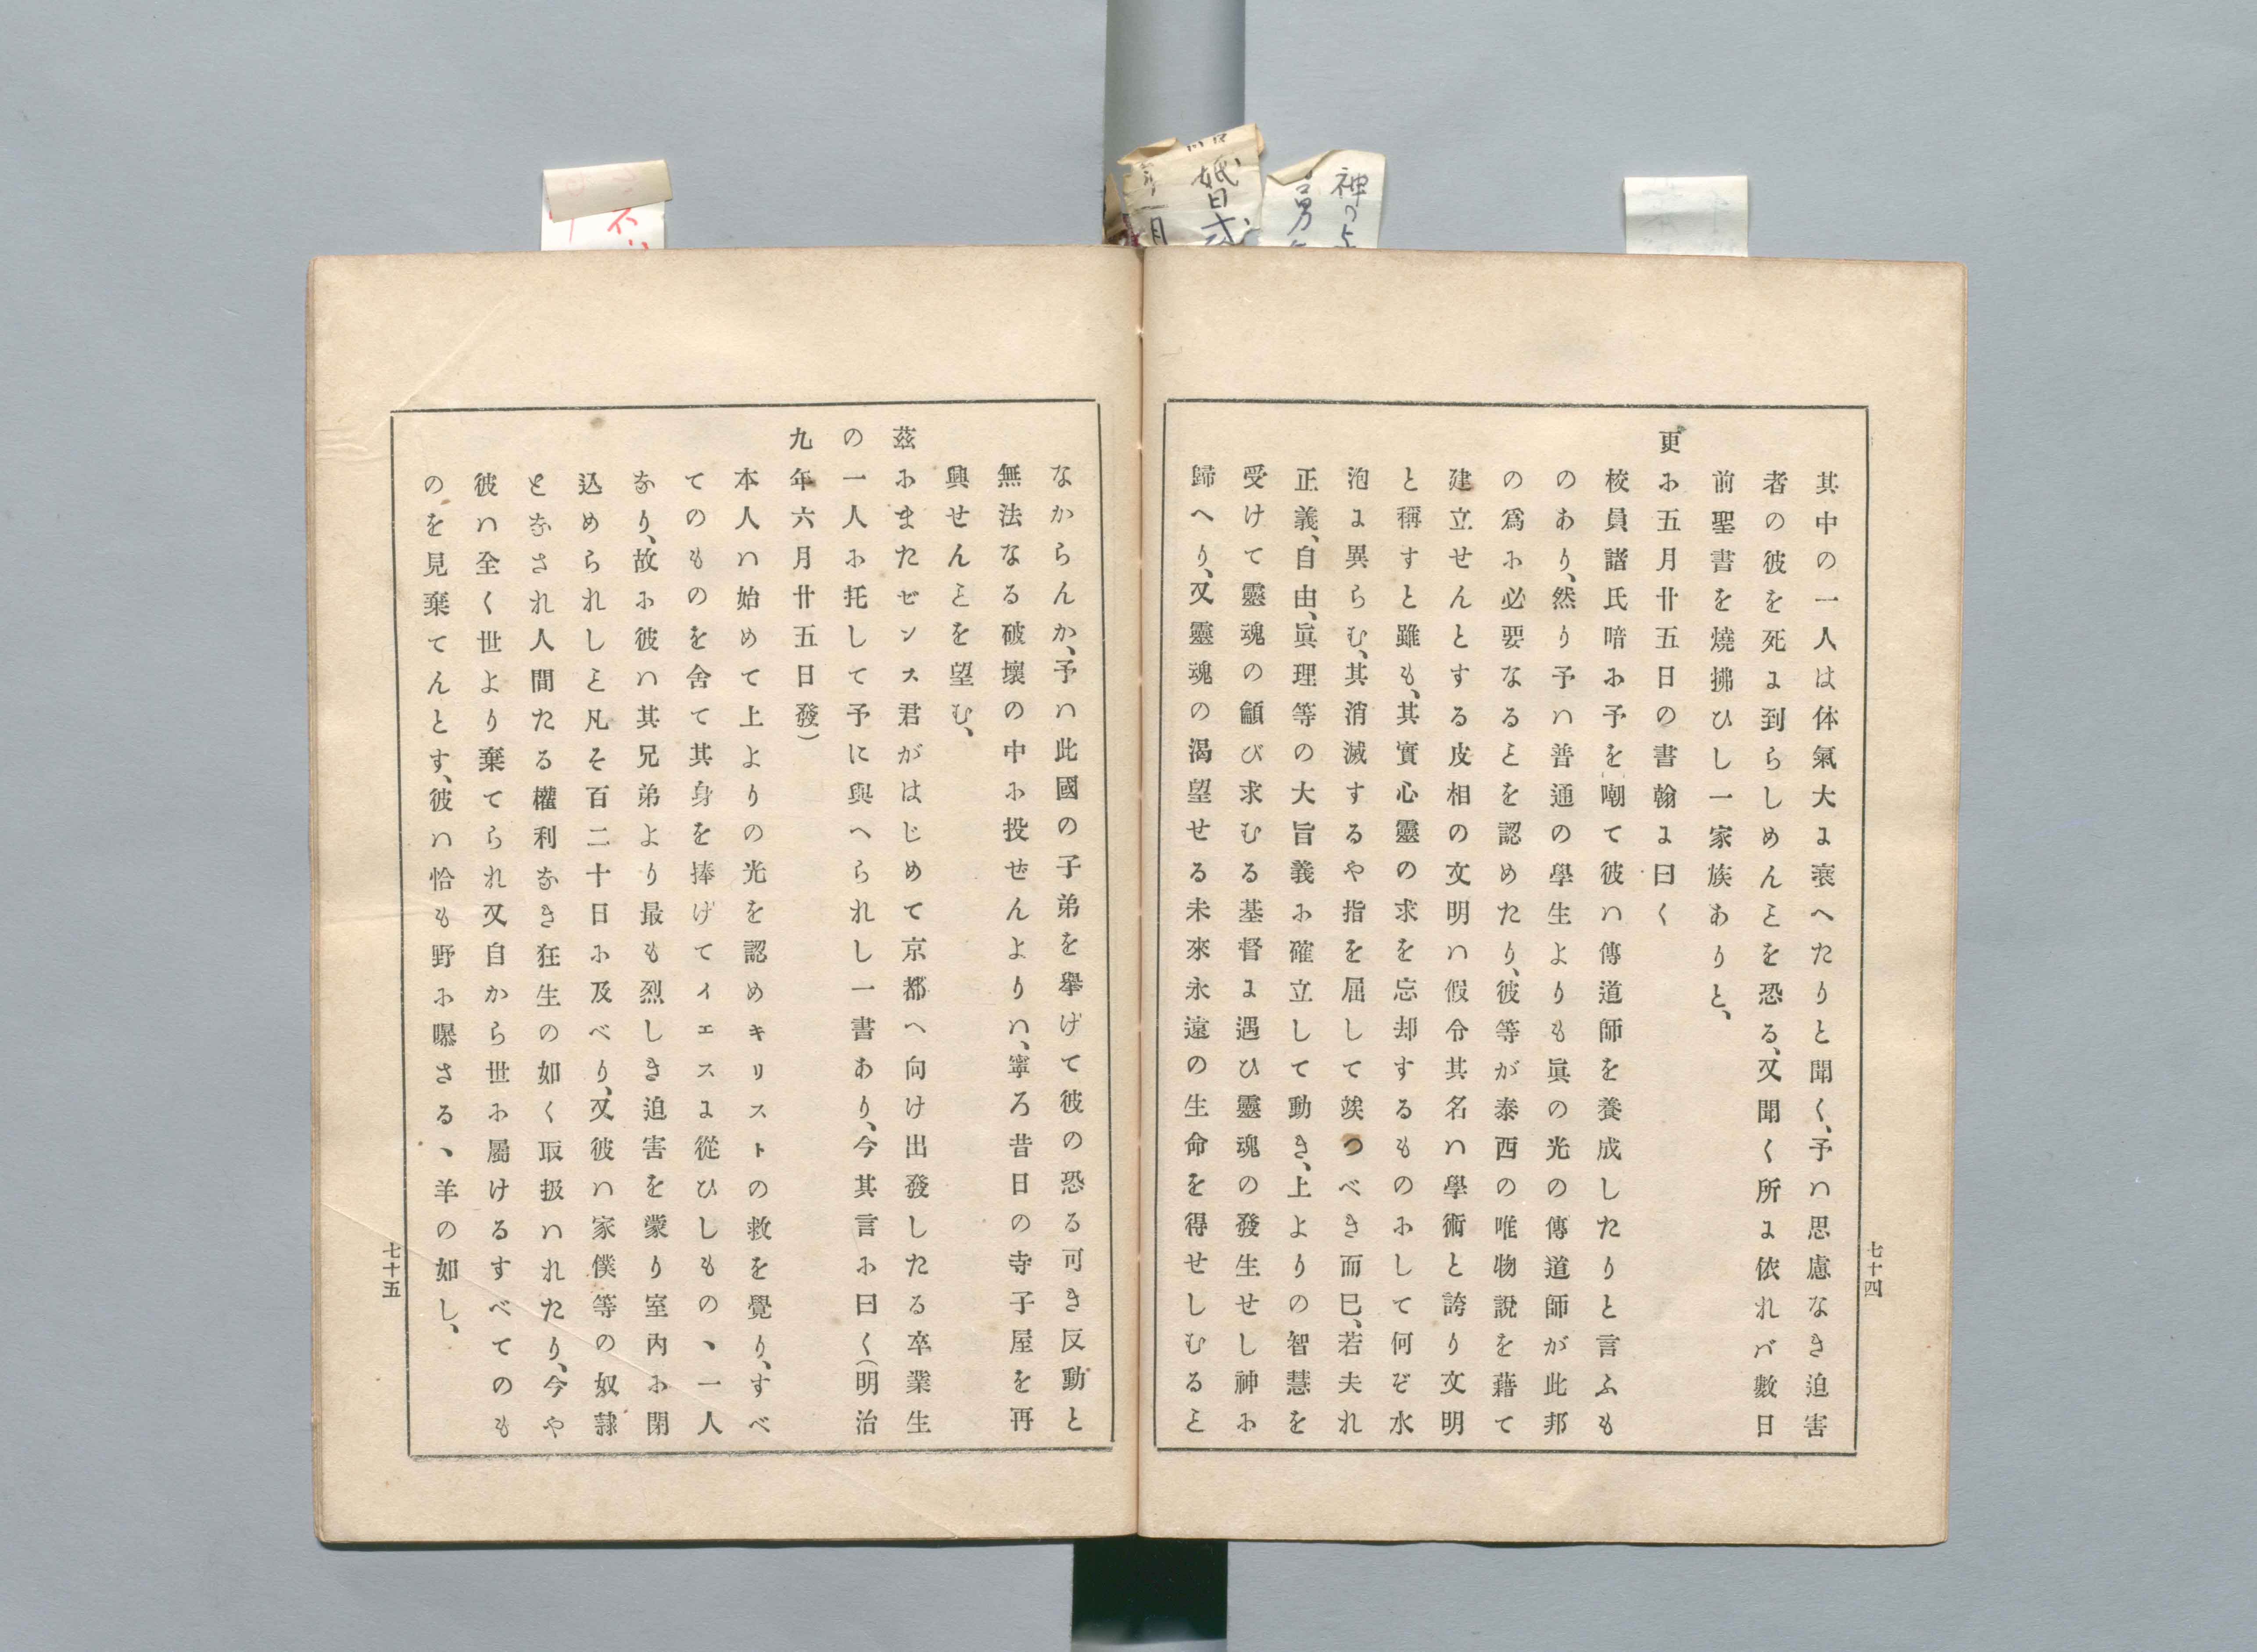 其中の一人は体氣大に衰へたりと聞く、予ハ思慮なき迫害
者の彼を死に到らしめんヿを恐る、又聞く所に依れバ數日
前聖書を燒拂ひし一家族ありと、
更に五月廿五日の書翰に曰く
校員諸氏暗に予を嘲て彼ハ傳道師を養成したりと言ふも
のあり、然り予ハ普通の學生よりも眞の光の傳道師が此邦
の爲に必要なるヿを認めたり、彼等が泰西の唯物說を藉て
建立せんとする皮相の文明ハ假令其名ハ學術と誇り文明
と稱すと雖も、其實心靈の求を忘却するものにして何ぞ水
泡に異らむ、其消滅するや指を屈して竢つべき而已、若夫れ
正義、自由、眞理等の大旨義に確立して動き、上よりの智慧を
受けて靈魂の顧び求むる基督に遇ひ靈魂の發生せし神に
歸へり、又靈魂の渴望せる未來永遠の生命を得せしむるヿ
七十四
なからんか、予ハ此國の子弟を擧げて彼の恐る可き反動と
無法なる破壞の中に投ぜんよりハ、寧ろ昔日の寺子屋を再
興せんヿを望む、
茲にまたゼンス君がはじめて京都へ向け出發したる卒業生
の一人に托して予に與へられし一書あり、今其言に曰く(明治
九年六月廿五日發)
本人ハ始めて上よりの光を認めキリストの救を覺り、すべ
てのものを舍て其身を捧げてイエスに從ひしもの、一人
なり、故に彼ハ其兄弟より最も烈しき迫害を蒙り室內に閉
込められしヿ凡そ百二十日に及べり、又彼ハ家僕等の奴隷
となされ人間たる權利なき狂生の如く取扱ハれたり、今や
彼ハ全く世より棄てられ又自から世に屬けるすべてのも
のを見棄てんとす、彼ハ恰も野に曝さるヽ羊の如し、
七十五